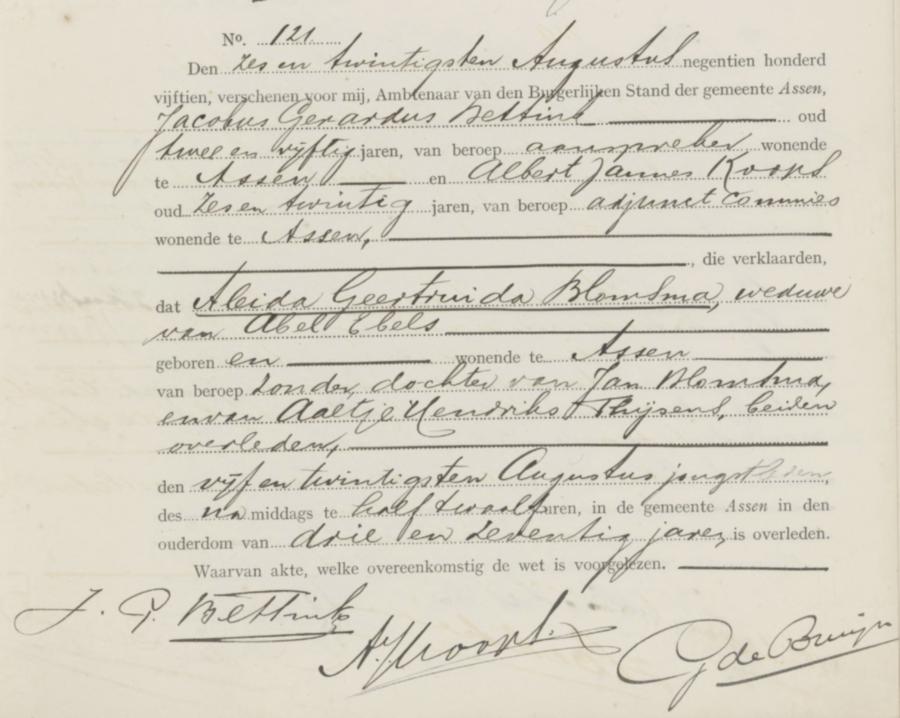 No. 121
Den zes en twintigsten Augustus negentien honderd
vijftien, verschenen voor mij, Ambtenaar van den Burgerlijken Stand der gemeente Assen,
Jacobus Gerardus Bettink oud
twee en vijftig jaren, van beroep aanspreker wonende
te Assen, en Albert Jannes Koops
oud zes en twintig jaren, van beroep adjunct commies
wonende te Assen,
, die verklaarden,
dat Aleida Geertruida Blomsma, weduwe
van Abel Ebels
geboren en wonende te Assen
van beroep zonder, dochter van Jan Blomsma,
en van Aaltje Hendriks Thijsens, beiden
overleden,
den vijf en twintigsten Augustus jongstleden,
des na middags te half twaalf uren, in de gemeente Assen in den
ouderdom van drie en zeventig jaren, is overleden.
Waarvan akte, welke overeenkomstig de wet is voorgelezen.
J. G. Bettink
A J Koops.
G de Bruijn